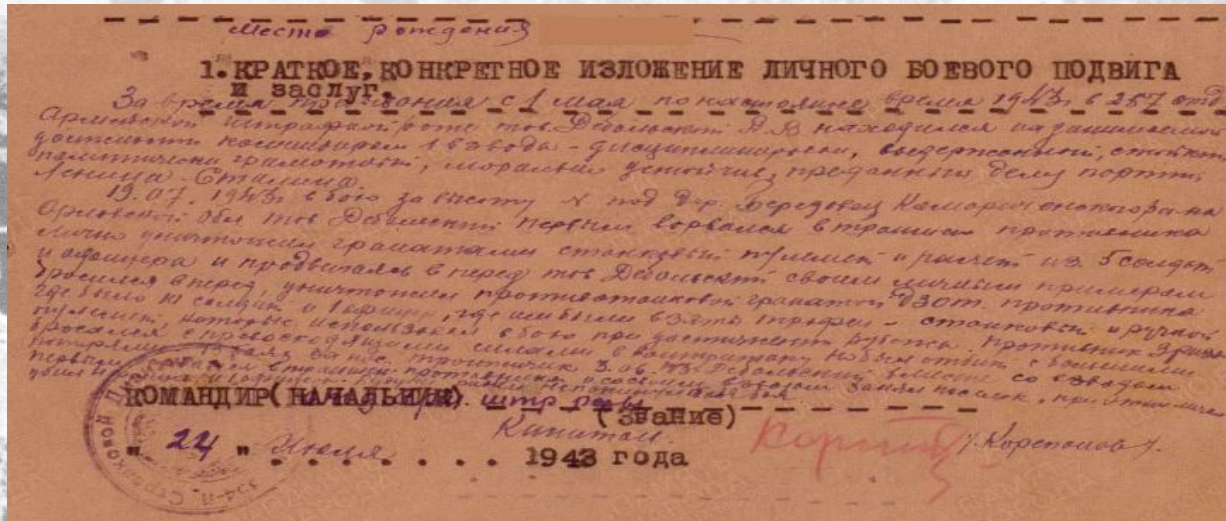 Место рождения
1. КРАТКОЕ, КОНКРЕТНОЕ ИЗЛОЖЕНИЕ ЛИЧНОГО БОЕВОГО ПОДВИГА
и заслуг.
За время пребывания с 1 мая по настоящее время 1943г в 257 отд.
Армейской штрафной роте тов. Дебольский находился на занимаемой
должности командиром 1 взвода - дисциплинирован, выдержанный, стойкий
политически грамотный, морально устойчив, преданный делу партии
Ленина-Сталина.
19.07.1943г в бою за высоту под дер. района
Орловской обл тов. Дебольский первым ворвался в траншеи противника
лично уничтожил гранатами станковый пулемет и расчет из 5 солдат
и офицера и продвигаясь вперед тов Дебольский своим личным примером
бросился вперед, уничтожил противотанковой гранатой дзот противника
где было 10 солдат и 1 офицер, где им были взяты трофеи - станковый и ручной
пулемет, которые использовал в бою при достижении рубежа. Противник 3 раза
бросался с превосходящими силами в контратаку но был отбит с большими
потерями. противника Дебольский вместе со взводом
первым
КОМАНДИР (НАЧАЛЬНИК) штр роты
(Звание)
Капитан.
"24" Июля 1943 года